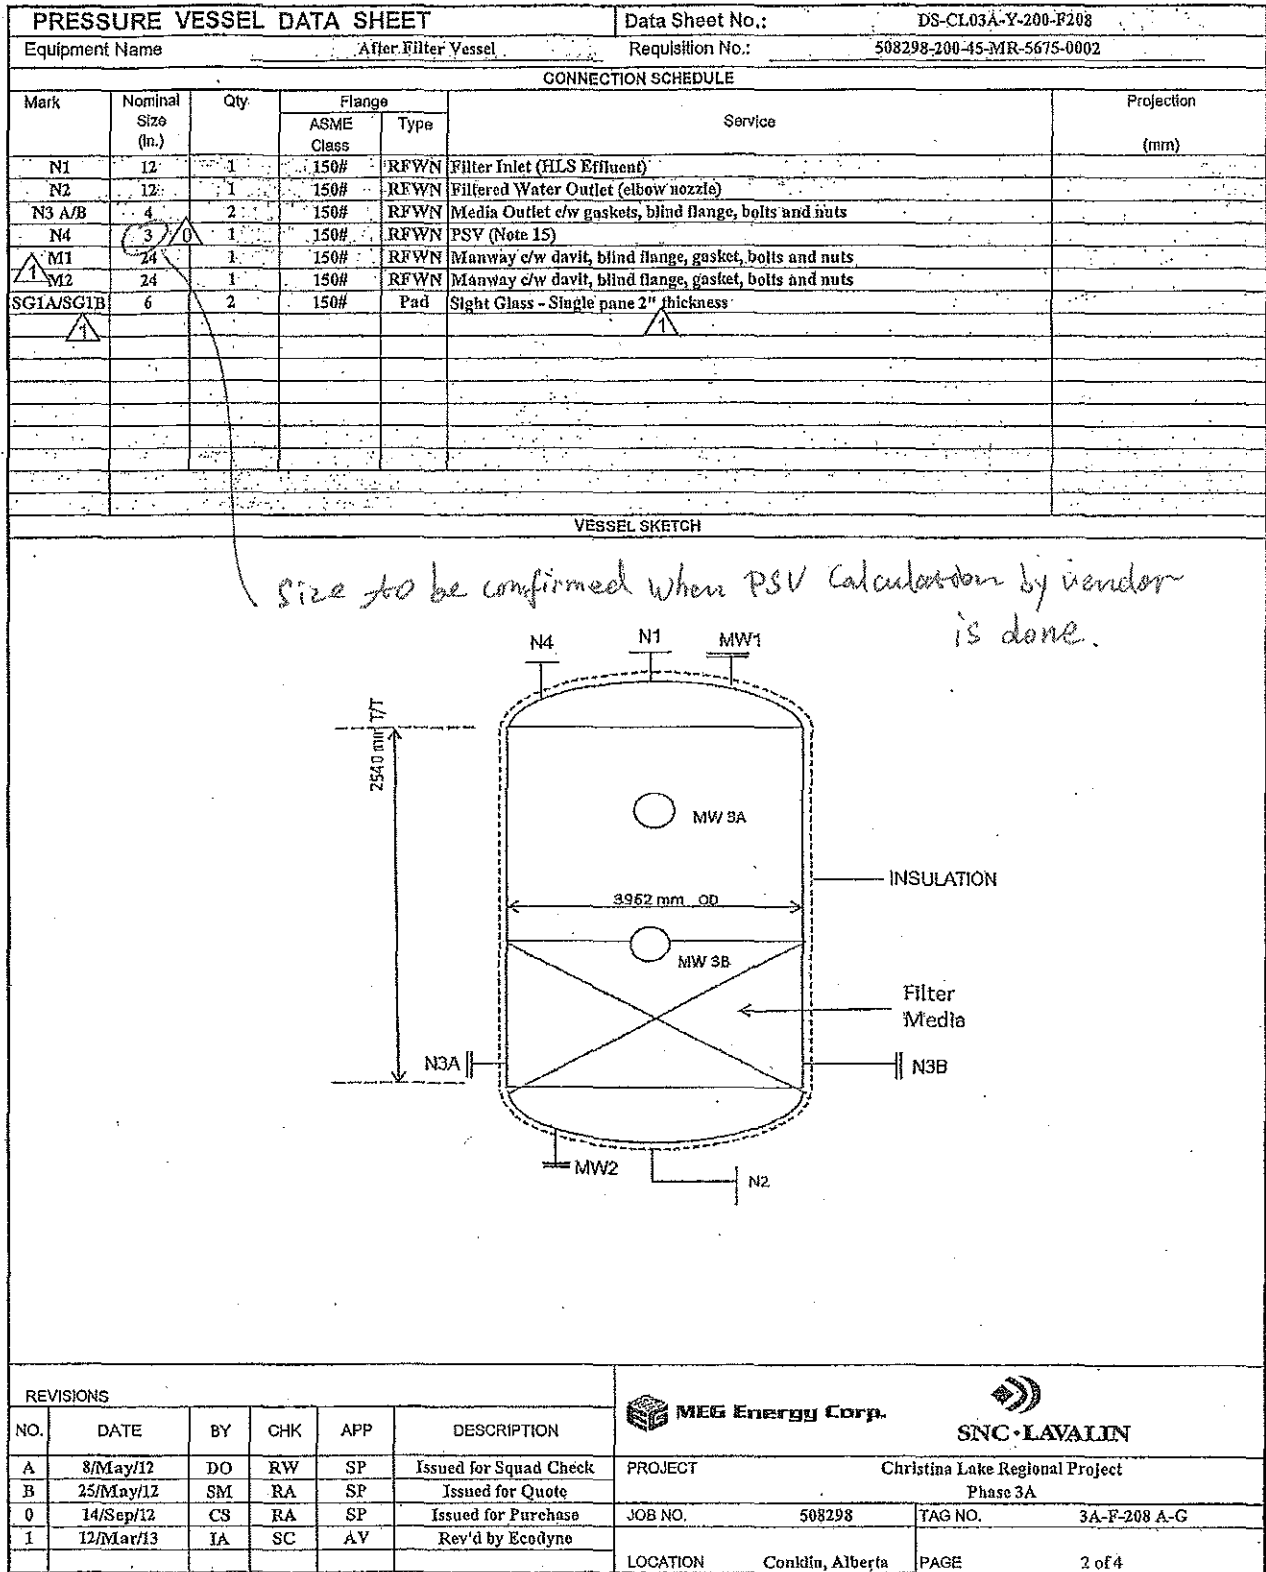 PRESSURE VESSEL DATA SHEET Data Sheet No.: DS-CL03A-Y-200-F208
Equipment Name After Filter Vessel Requisition No.: 508298-200-45-MR-5675-0002
CONNECTION SCHEDULE
Mark Nominal Size (In.) Qty. Flange ASME Class Type Service Projection (mm)
N1 12 1 150# RFWN Filter Inlet (HLS Effluent)
N2 12 1 150# RFWN Filtered Water Outlet (elbow nozzle)
N3 A/B 4 2 150# RFWN Media Outlet c/w gaskets, blind flange, bolts and nuts
N4 3 0 1 150# RFWN PSV (Note 15)
M1 24 1 150# RFWN Manway c/w davit, blind flange, gasket, bolts and nuts
1
M2 24 1 150# RFWN Manway c/w davit, blind flange, gasket, bolts and nuts
SG1A/SG1B 6 2 150# Pad Sight Glass - Single pane 2" thickness
1 1
VESSEL SKETCH
Size to be confirmed when PSV Calculation by vendor
is done.
N4 N1 MW1
2540 mm T/T
MW 3A
INSULATION
3962 mm OD
MW 3B
Filter
Media
N3A N3B
MW2
N2
REVISIONS
MEG Energy Corp.
SNC·LAVALIN
NO. DATE BY CHK APP DESCRIPTION
A 8/May/12 DO RW SP Issued for Squad Check
B 25/May/12 SM RA SP Issued for Quote
0 14/Sep/12 CS RA SP Issued for Purchase
1 12/Mar/13 IA SC AV Rev'd by Ecodyne
PROJECT Christina Lake Regional Project
Phase 3A
JOB NO. 508298 TAG NO. 3A-F-208 A-G
LOCATION Conklin, Alberta PAGE 2 of 4